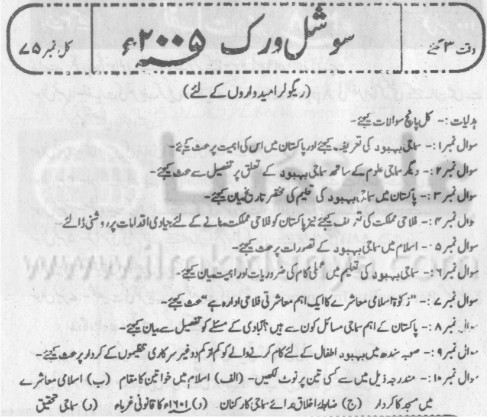 وقت ۳ گھنٹے
سوشل ورک ۲۰۰۵ء
کل نمبر ۷۵
(ریگولر امیدواروں کے لئے)
ہدایات :- کل پانچ سوالات کیجئے-
سوال نمبر ۱ :- سماجی بہبود کی تعریف کیجئے اور پاکستان میں اس کی اہمیت پر بحث کیجئے-
سوال نمبر ۲ :- دیگر سماجی علوم کے ساتھ سماجی بہبود کے تعلق پر تفصیل سے بحث کیجئے-
سوال نمبر ۳ :- پاکستان میں سماجی بہبود کی تعلیم کی مختصر تاریخ بیان کیجئے-
سوال نمبر ۴ :- فلاحی مملکت کی تعریف کیجئے نیز پاکستان کو فلاحی مملکت بنانے کے لئے بنیادی اقدامات پر روشنی ڈالئے-
سوال نمبر ۵ :- اسلام میں سماجی بہبود کے تصورات پر بحث کیجئے-
سوال نمبر ۶ :- سماجی بہبود کی تعلیم میں "عملی کام کی ضروریات اور اہمیت بیان کیجئے-
سوال نمبر ۷ :- "زکوٰۃ اسلامی معاشرے کا ایک اہم معاشرتی فلاحی ادارہ ہے" بحث کیجئے-
سوال نمبر ۸ :- پاکستان کے اہم سماجی مسائل کون سے ہیں؟ آبادی کے مسئلے کو تفصیل سے بیان کیجئے-
سوال نمبر ۹ :- صوبہ سندھ میں بہبود اطفال کے لئے کام کرنے والے کم از کم دو غیر سرکاری تنظیموں کے کردار پر بحث کیجئے-
سوال نمبر ۱۰ :- مندرجہ ذیل میں سے کسی تین پر نوٹ لکھیں- (الف) اسلام میں خواتین کا مقام (ب) اسلامی معاشرے
میں مسجد کا کردار (ج) ضابطہ اخلاق برائے سماجی کارکنان (د) ۱۶۰۱ء کا قانونی غرباء (ر) سماجی تحقیق